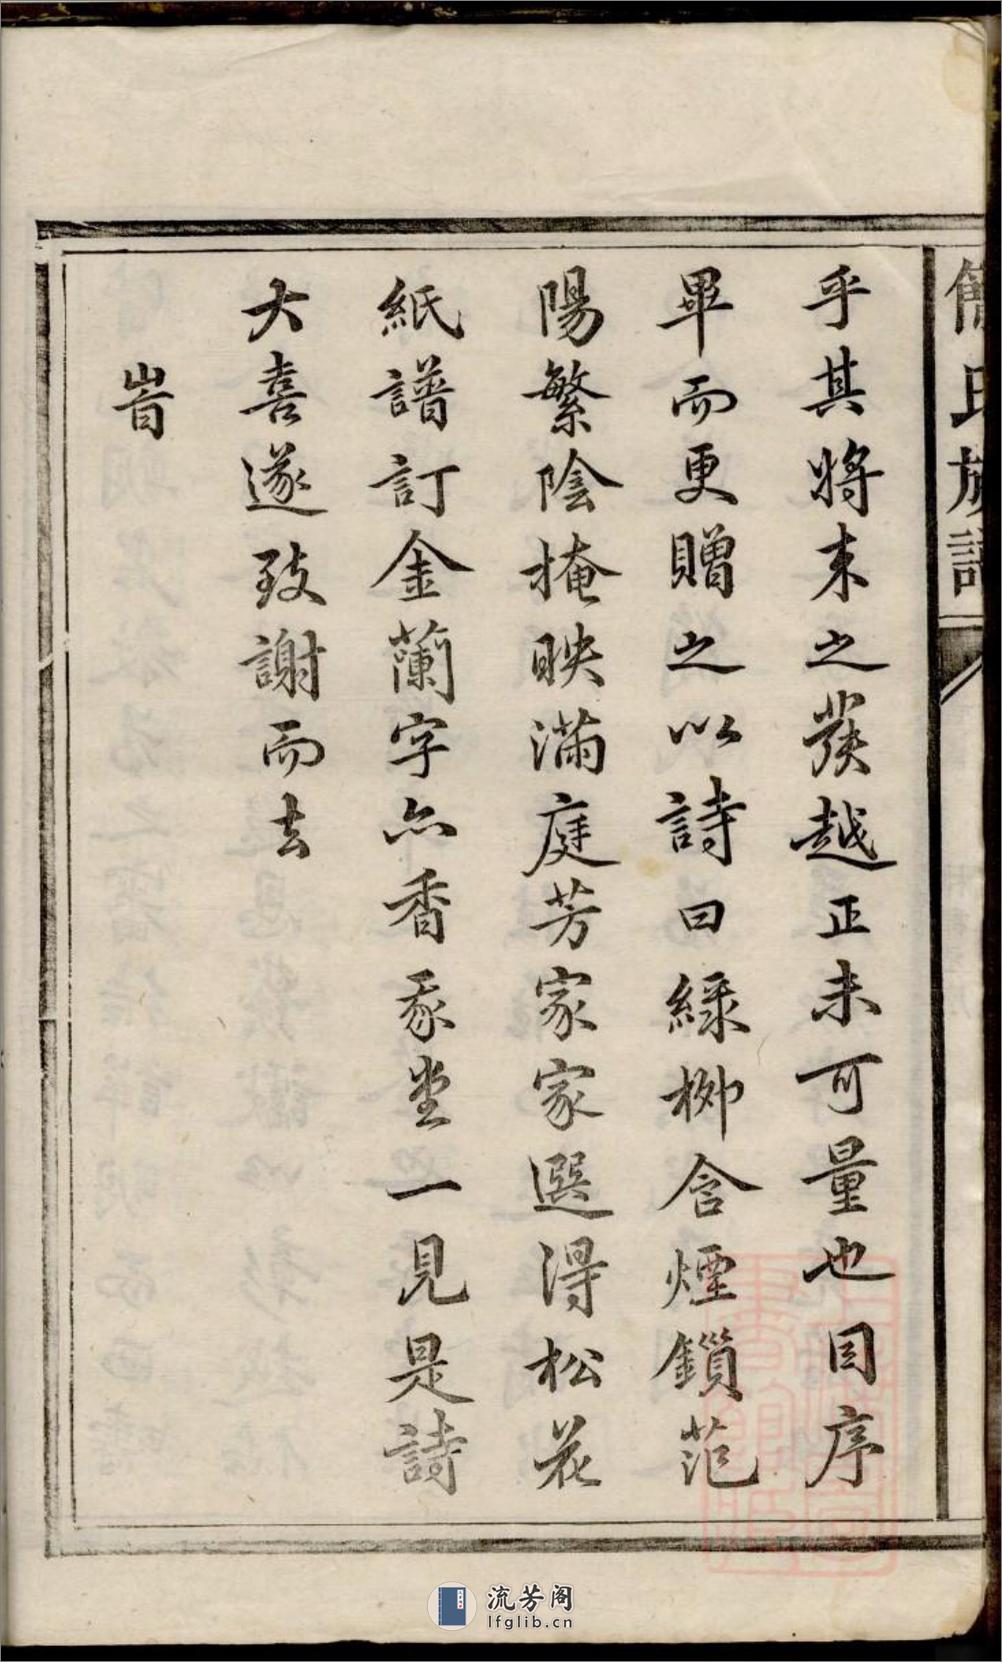 乎其將来之發越正未可量也因序
畢而更贈之以詩曰綠栁含煙鎖范
陽繁陰掩映滿庭芳家家選得松花
紙譜訂金蘭字亦香豕堂一見是詩
大喜遂致謝而去
旹
氏族譜
流芳阁
lfglib.cn